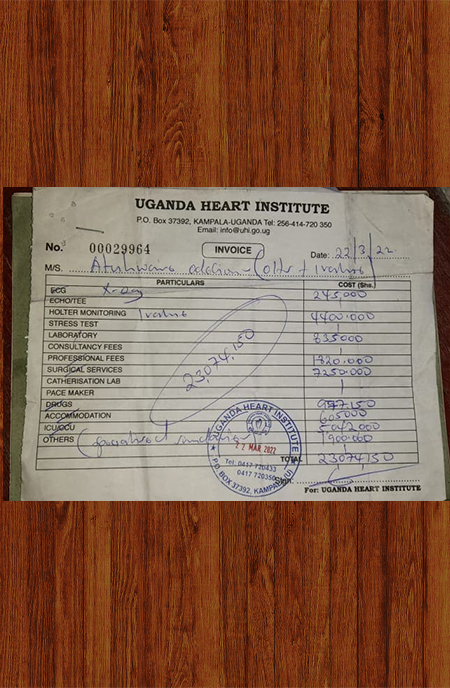 UGANDA HEART INSTITUTE
P.O. Box 37392, KAMPALA-UGANDA Tel: 256-414-720 350
Email: info@uhi.go.ug
No. 00029964 INVOICE Date: 22/3/22
M/S.
PARTICULARS COST (Shs.)
ECG X-ray 245,000
ECHO/TEE
HOLTER MONITORING 1 valve 4400.000
STRESS TEST
LABORATORY 835000
CONSULTANCY FEES
PROFESSIONAL FEES 1820.000
SURGICAL SERVICES 7250.000
CATHERISATION LAB
PACE MAKER
DRUGS 997150
ACCOMMODATION 605000
ICU/CCU 5042000
OTHERS 1900.000
23,074,150
TOTAL 23074,150
UGANDA HEART INSTITUTE
22 MAR 2022
Tel: 0417 720433
0417 720350
P.O. BOX 37392, KAMPALA (U)
Sign.
For: UGANDA HEART INSTITUTE